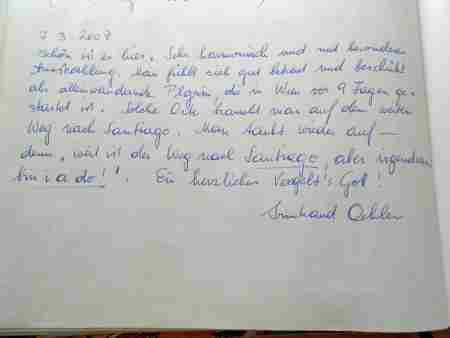 7.3.2007
Schön ist es hier. Sehr harmonisch und mit besonderer
Ausstrahlung. Man fühlt sich gut betreut und beschützt
als alleinwandernde Pilgerin, die in Wien vor 9 Tagen ge-
startet ist. Solche Orte braucht man auf dem weiten
Weg nach Santiago. Man tankt wieder auf —
denn, weit ist der Weg nach Santiago, aber irgendwann
bin i a do!". Ein herzliches Vergelt's Gott!